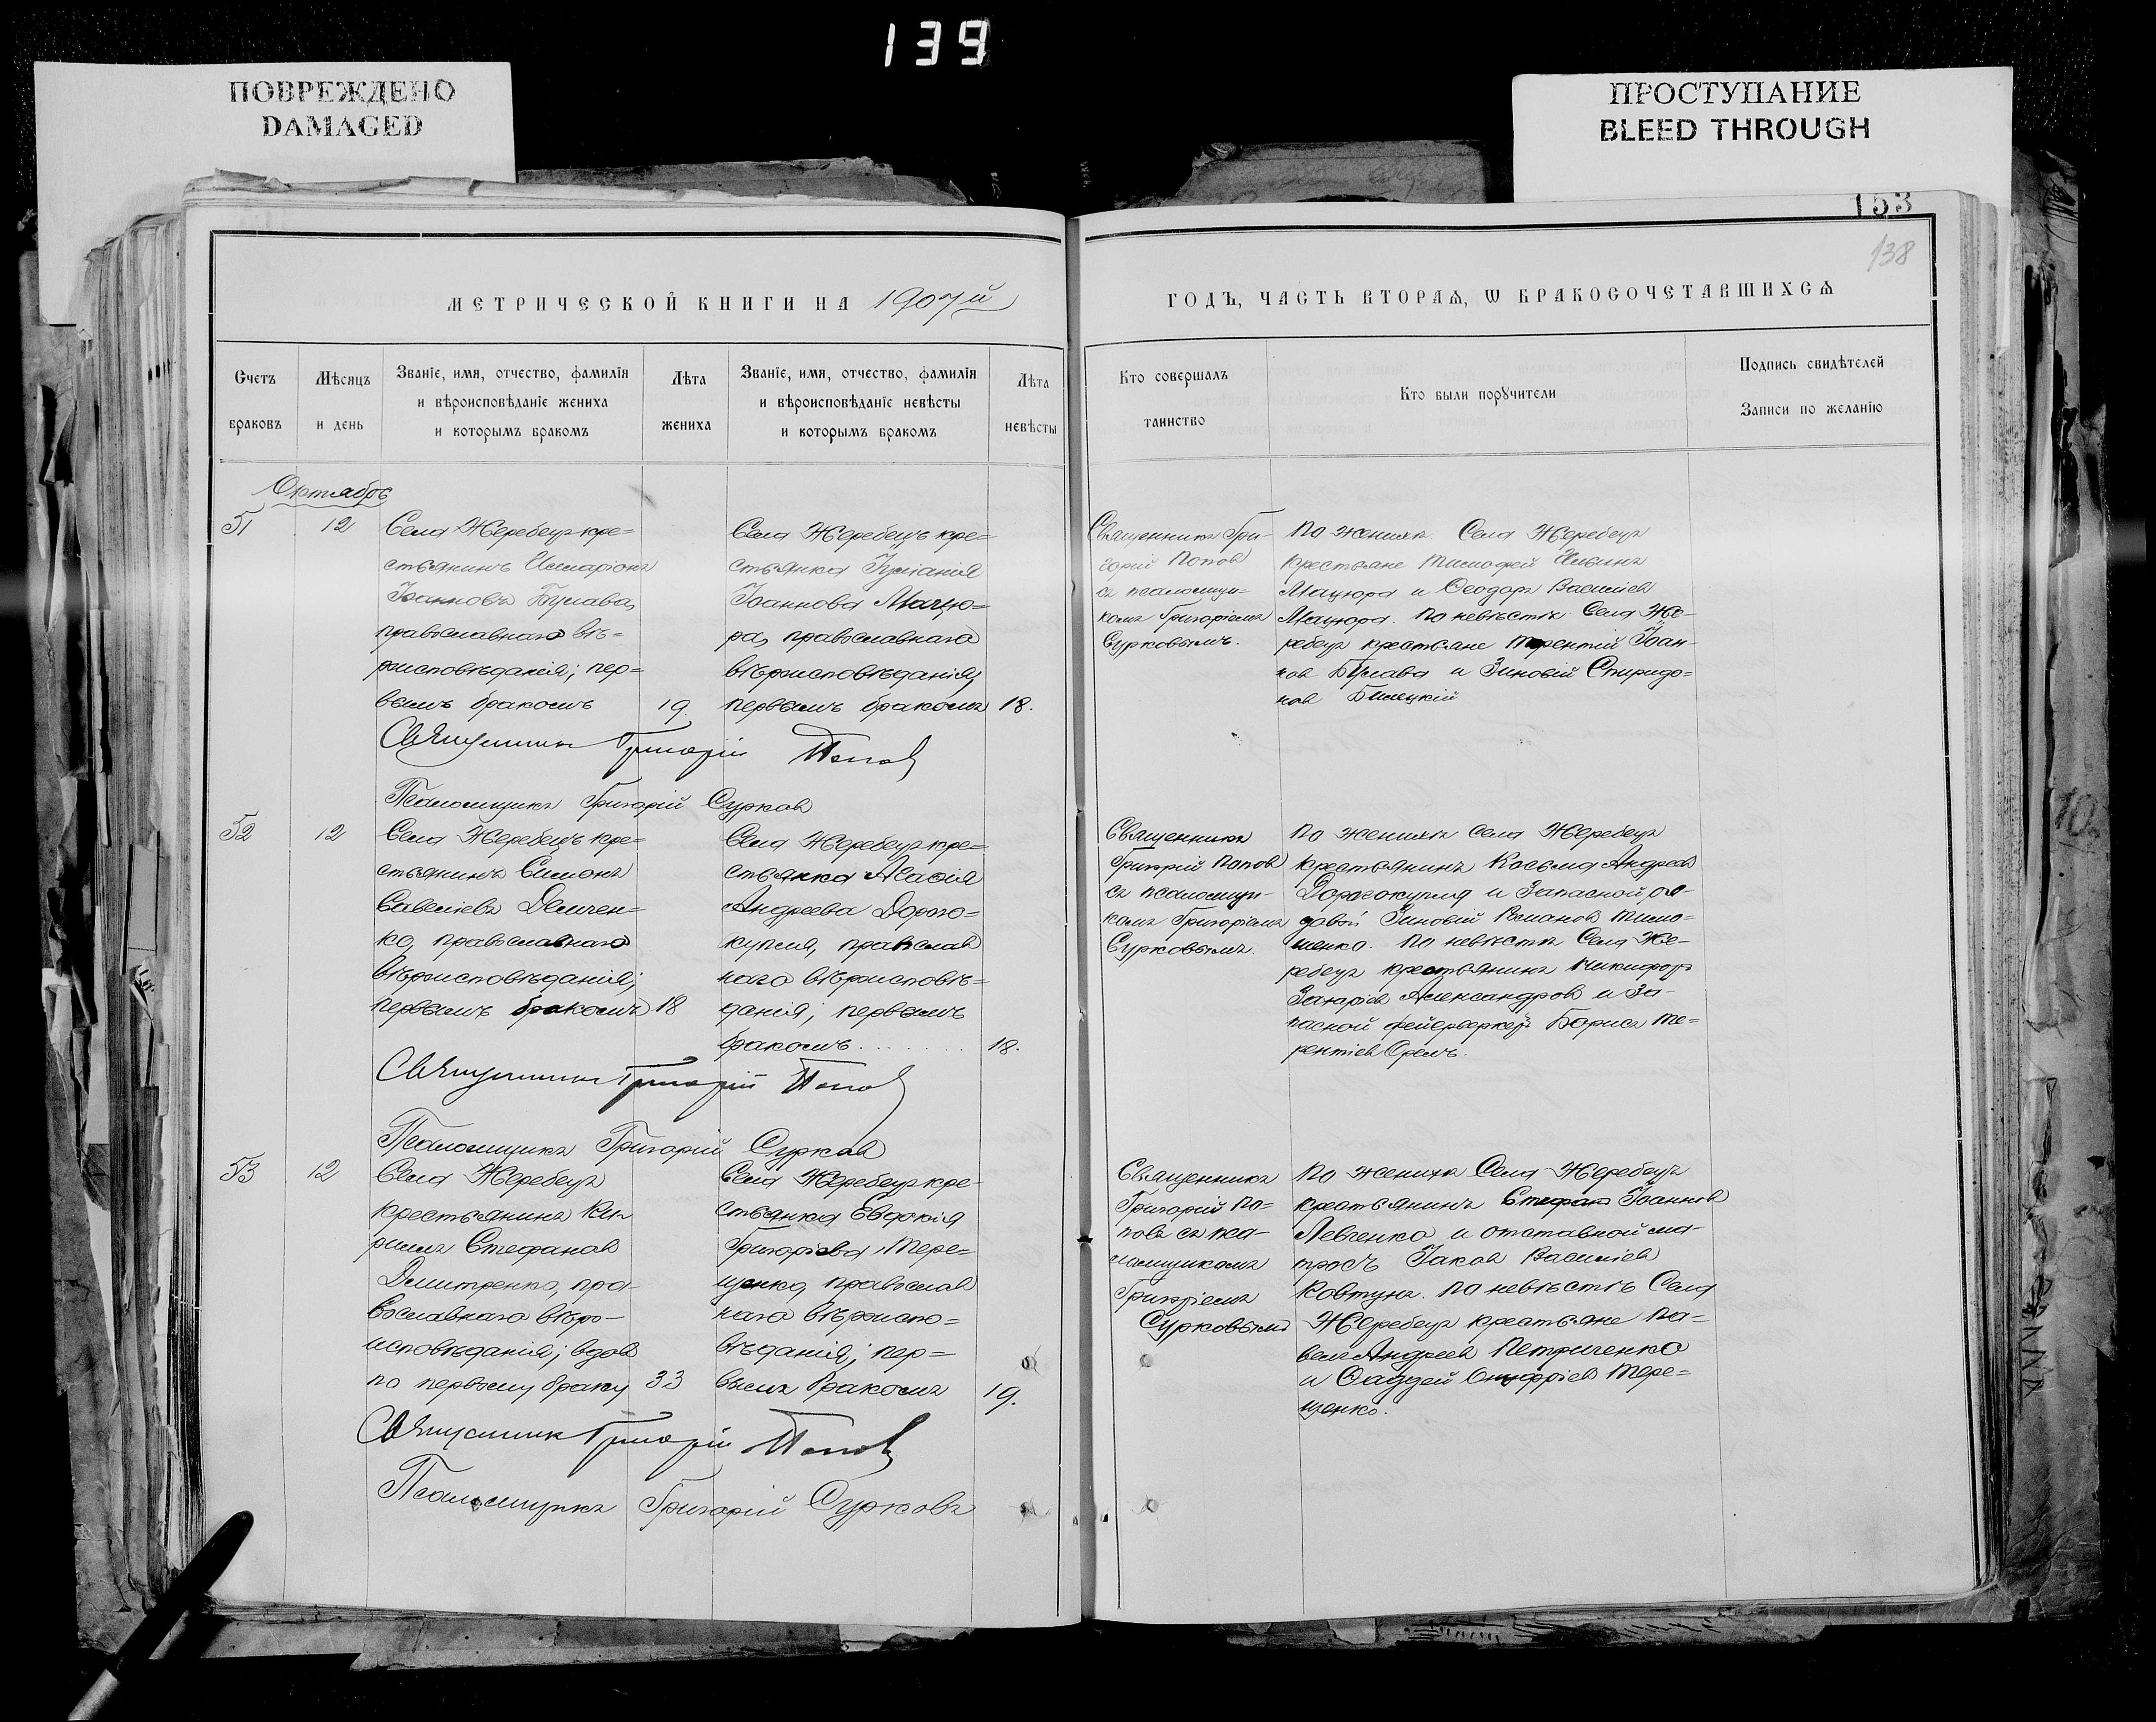 139
ПОВРЕЖДЕНО
DAMAGED
ПРОСТУПАНИЕ
BLEED THROUGH
153
138
МЕТРИЧЕСКОЙ КНИГИ НА 1907й
ГОДЪ, ЧАСТЬ ВТОРАѦ, Ѡ БРАКОСОЧЕТАВШИХСѦ
Счетъ
браковъ
Мѣсяцъ
и день
Званіе, имя, отчество, фамилія
и вѣроисповѣданіе жениха
и которымъ бракомъ
Лѣта
жениха
Званіе, имя, отчество, фамилія
и вѣроисповѣданіе невѣсты
и которымъ бракомъ
Лѣта
невѣсты
Кто совершалъ
таинство
Кто были порꙋчители
Подпись свидѣтелей
Записи по желанію
Октябрь
51
12
Села Жеребецъ кре=
стьянинъ Иларіонъ
Іоанновъ Булава,
православнаго вѣ=
роисповѣданія; пер=
вымъ бракомъ
19.
Села Жеребецъ кре=
стьянка Іуліанія
Іоаннова Мацю=
ра, православнаго
вѣроисповѣданія,
первымъ бракомъ
18.
Священникъ Гри-
горій Попов
съ псаломщи-
комъ Григоріемъ
Сурковымъ.
По женихѣ Села Жеребецъ
крестьяне Тимофей
Мацюра и Ѳеодоръ Василіев
Мацюра. По невѣстѣ Села Же-
ребецъ крестьяне Терентій Іоан-
нов Булава и Зиновій Спиридо=
нов Билецкій
Священникъ Григорій Попов
Псаломщикъ Григорій Сурков
52
12
Села Жеребецъ кре=
стьянинъ Симонъ
Савеліевъ Демчен=
ко, православнаго
вѣроисповѣданія;
первымъ бракомъ
18
Села Жеребецъ кре=
стьянка Агаѳія
Андреева Дорого=
купля, православ
наго вѣроисповѣ=
данія; первымъ
бракомъ . . . . . . .
18.
Священникъ
Григорій Попов
съ псаломщи-
комъ Григоріемъ
Сурковымъ.
По женихѣ Села Жеребецъ
крестьянинъ Косьма Андреев
Дорогокупля и Запасной ря-
довой Зиновій Романов Тимо=
шенко. По невѣстѣ Села Же-
ребецъ крестьянинъ Никифоръ
Захаріев Александров и За-
пасной фейерверкеръ Борисъ Те=
рентіев Орелъ.
Священникъ Григорій Попов
Псаломщикъ Григорій Сурков
53
12
Села Жеребецъ
крестьянинъ Ки
риллъ Стефанов
Дмитренко, пра-
вославнаго вѣро-
исповѣданія; вдов
по первому браку
33
Села Жеребецъ кре-
стьянка Евдокія
Григоріева Тере=
щенко, православ
наго вѣроиспо=
вѣданія; пер=
вымъ бракомъ
19.
Священникъ
Григорій По=
повъ съ пса-
ломщикомъ
Григоріемъ
Сурковымъ
По женихѣ Села Жеребецъ
крестьянинъ Стефанъ Іоаннов
Левченко и отставной ма-
тросъ Іаков Василіев
Ковтунъ. По невѣстѣ Села
Жеребецъ крестьяне Па=
велъ Андреев Петриченко
и Ѳаддей Онуфріев Тере=
щенко.
Священникъ Григорій Попов
Псаломщикъ Григорій Сурковъ